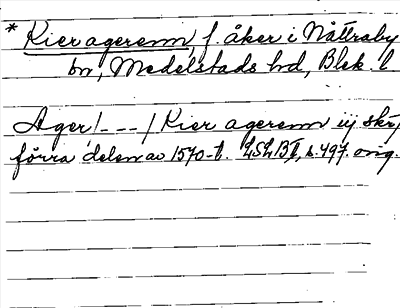 * Kieragerenn, f. åker i Nättraby
bn, Medelstads hd, Blek. l
Ager/---/Kier agerenn iij skr,
förra delen av 1570-t. LSLBII, s. 497. orig.